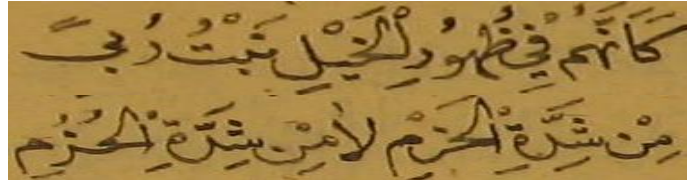 كَأَنَّهُمْ فِي ظُهُورِ الْخَيْلِ نَبْتُ رُبىً
مِنْ شِدَّةِ الْحَزْمِ لَا مِنْ شِدَّةِ الْحُزُمِ